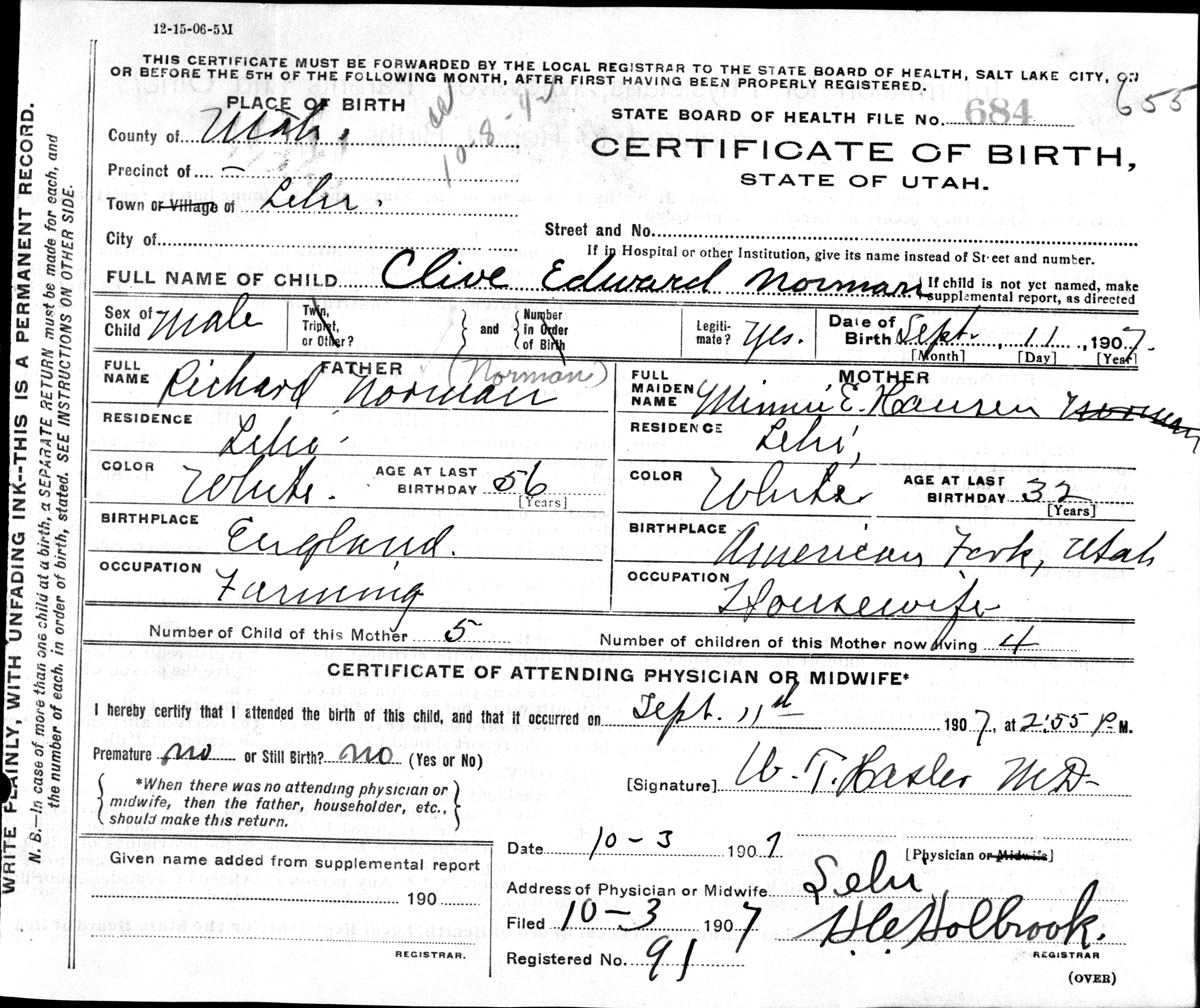 12-15-06-5M
THIS CERTIFICATE MUST BE FORWARDED BY THE LOCAL REGISTRAR TO THE STATE BOARD OF HEALTH, SALT LAKE CITY, ON
OR BEFORE THE 5TH OF THE FOLLOWING MONTH, AFTER FIRST HAVING BEEN PROPERLY REGISTERED.
655
PLACE OF BIRTH
10-8-
STATE BOARD OF HEALTH FILE No. 684
County of Utah.
CERTIFICATE OF BIRTH,
Precinct of -
STATE OF UTAH.
Town or Village of Lehi.
City of
Street and No.
If in Hospital or other Institution, give its name instead of Street and number.
FULL NAME OF CHILD Clive Edward Norman If child is not yet named, make supplemental report, as directed
Sex of Child Male Twin, Triplet, or Other? and Number in Order of Birth Legiti-mate? Yes. Date of Birth Sept. 11, 1907.
[Month] [Day] [Year]
FATHER
FULL NAME Richard Norman (Norman)
MOTHER
FULL MAIDEN NAME Minnie E. Hansen Norman
RESIDENCE Lehi
RESIDENCE Lehi,
COLOR White. AGE AT LAST BIRTHDAY 56 [Years]
COLOR White AGE AT LAST BIRTHDAY 32 [Years]
BIRTHPLACE England.
BIRTHPLACE American Fork, Utah
OCCUPATION Farming
OCCUPATION Housewife
Number of Child of this Mother 5 Number of children of this Mother now living 4
CERTIFICATE OF ATTENDING PHYSICIAN OR MIDWIFE*
I hereby certify that I attended the birth of this child, and that it occurred on Sept. 11th 1907, at 2:55 P. M.
Premature no or Still Birth? no (Yes or No)
[Signature] W. T. Hasler M D-
*When there was no attending physician or
midwife, then the father, householder, etc.,
should make this return.
Given name added from supplemental report
190
REGISTRAR.
Date 10-3 1907 [Physician or Midwife]
Address of Physician or Midwife Lehi
Filed 10-3 1907 H.C. Holbrook.
Registered No. 91 REGISTRAR
(OVER)
WRITE PLAINLY, WITH UNFADING INK--THIS IS A PERMANENT RECORD.
N. B.—In case of more than one child at a birth, a SEPARATE RETURN must be made for each, and
the number of each, in order of birth, stated. SEE INSTRUCTIONS ON OTHER SIDE.